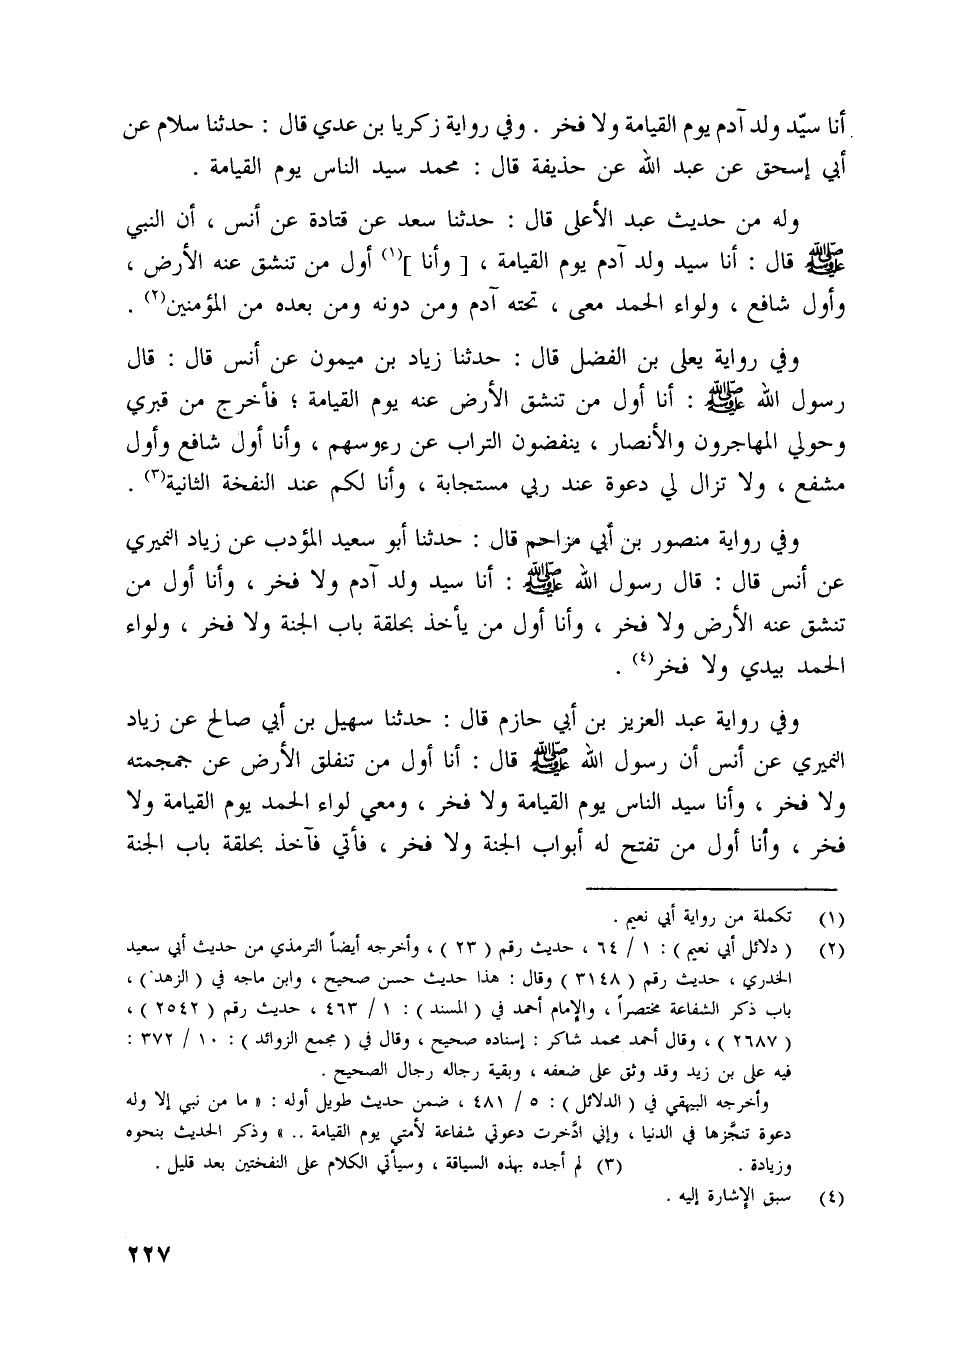 أنا سيّد ولد آدم يوم القيامة ولا فخر . وفي رواية زكريا بن عدي قال : حدثنا سلام عن
أبي إسحق عن عبد الله عن حذيفة قال : محمد سيد الناس يوم القيامة .
وله من حديث عبد الأعلى قال : حدثنا سعد عن قتادة عن أنس ، أن النبي
ﷺ قال : أنا سيد ولد آدم يوم القيامة ، [ وأنا ](١) أول من تنشق عنه الأرض ،
وأول شافع ، ولواء الحمد معى ، تحته آدم ومن دونه ومن بعده من المؤمنين(٢) .
وفي رواية يعلى بن الفضل قال : حدثنا زياد بن ميمون عن أنس قال : قال
رسول الله ﷺ : أنا أول من تنشق الأرض عنه يوم القيامة ؛ فأخرج من قبري
وحولي المهاجرون والأنصار ، ينفضون التراب عن رءوسهم ، وأنا أول شافع وأول
مشفع ، ولا تزال لي دعوة عند ربي مستجابة ، وأنا لكم عند النفخة الثانية(٣) .
وفي رواية منصور بن أبي مزاحم قال : حدثنا أبو سعيد المؤدب عن زياد النميري
عن أنس قال : قال رسول الله ﷺ : أنا سيد ولد آدم ولا فخر ، وأنا أول من
تنشق عنه الأرض ولا فخر ، وأنا أول من يأخذ بحلقة باب الجنة ولا فخر ، ولواء
الحمد بيدي ولا فخر(٤) .
وفي رواية عبد العزيز بن أبي حازم قال : حدثنا سهيل بن أبي صالح عن زياد
النميري عن أنس أن رسول الله ﷺ قال : أنا أول من تنفلق الأرض عن جمجمته
ولا فخر ، وأنا سيد الناس يوم القيامة ولا فخر ، ومعي لواء الحمد يوم القيامة ولا
فخر ، وأنا أول من تفتح له أبواب الجنة ولا فخر ، فأتي فآخذ بحلقة باب الجنة
(١) تكملة من رواية أبي نعيم .
(٢) ( دلائل أبي نعيم ) : ١ / ٦٤ ، حديث رقم ( ٢٣ ) ، وأخرجه أيضاً الترمذي من حديث أبي سعيد
الخدري ، حديث رقم ( ٣١٤٨ ) وقال : هذا حديث حسن صحيح ، وابن ماجه في ( الزهد ) ،
باب ذكر الشفاعة مختصراً ، والإمام أحمد في ( المسند ) : ١ / ٤٦٣ ، حديث رقم ( ٢٥٤٢ ) ،
( ٢٦٨٧ ) ، وقال أحمد محمد شاكر : إسناده صحيح ، وقال في ( مجمع الزوائد ) : ١٠ / ٣٧٢ :
فيه على بن زيد وقد وثق على ضعفه ، وبقية رجاله رجال الصحيح .
وأخرجه البيهقي في ( الدلائل ) : ٥ / ٤٨١ ، ضمن حديث طويل أوله : « ما من نبي إلا وله
دعوة تنجَّزها في الدنيا ، وإني ادَّخرت دعوتي شفاعة لأمتي يوم القيامة .. » وذكر الحديث بنحوه
وزيادة . (٣) لم أجده بهذه السياقة ، وسيأتي الكلام على النفختين بعد قليل .
(٤) سبق الإشارة إليه .
٢٢٧